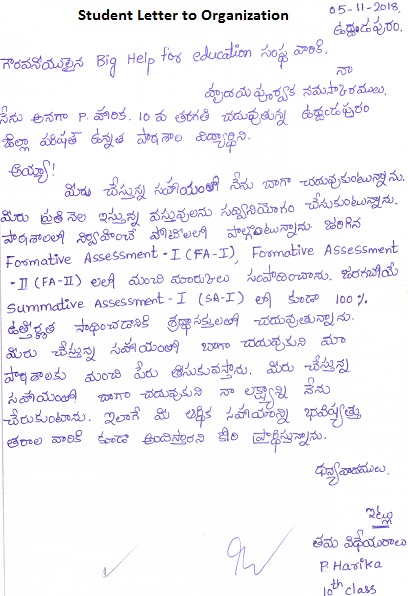 Student Letter to Organization
05-11-2018,
ఉద్దండపురం.
గౌరవనీయులైన Big Help for education సంస్థ వారికి.
నా
హృదయపూర్వక నమస్కారములు.
నేను అనగా P. హారిక. 10 వ తరగతి చదువుతున్న ఉద్దండపురం
జిల్లా పరిషత్ ఉన్నత పాఠశాల విద్యార్థిని.
అయ్యా!
మీరు చేస్తున్న సహాయంతో నేను బాగా చదువుకుంటున్నాను.
మీరు ప్రతి నెల ఇస్తున్న వస్తువులను సద్వినియోగం చేసుకుంటున్నాను.
పాఠశాలలో నిర్వహించే పోటీలలో పాల్గొంటున్నాను జరిగిన
Formative Assessment - I (FA-I), Formative Assessment
-II (FA-II) లలో మంచి మార్కులు సంపాదించాను. జరగబోయే
Summative Assessment - I (SA-I) లో కూడా 100 %
ఉత్తీర్ణత సాధించడానికి శ్రద్ధాసక్తులతో చదువుతున్నాను.
మీరు చేస్తున్న సహాయంతో బాగా చదువుకుని మా
పాఠశాలకు మంచి పేరు తీసుకువస్తాను. మీరు చేస్తున్న
సహాయంతో బాగా చదువుకుని నా లక్ష్యాన్ని నేను
చేరుకుంటాను. ఇలాగే మీ ఆర్థిక సహాయాన్ని భవిష్యత్తు
తరాల వారికి కూడా అందిస్తారని కోరి ప్రార్థిస్తున్నాను.
ధన్యవాదములు.
ఇట్లు
తమ విధేయురాలు
P. Harika
10th class